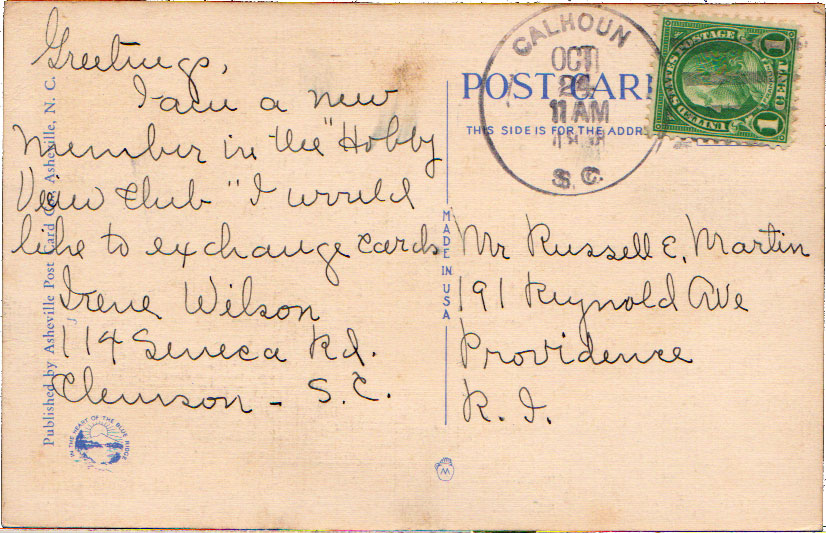 Greetings,
I am a new
member in the "Hobby
View Club" I would
like to exchange cards
Irene Wilson
114 Seneca Rd.
Clemson - S.C.
Published by Asheville Post Card Co., Asheville, N. C.
IN THE HEART OF THE BLUE RIDGE
MADE IN USA
W
CALHOUN
OCT
11 AM
S.C.
POST CAR
THIS SIDE IS FOR THE ADDR
UNITED STATES POSTAGE
1
1
Mr Russell E. Martin
191 Reynold Ave
Providence
R. I.